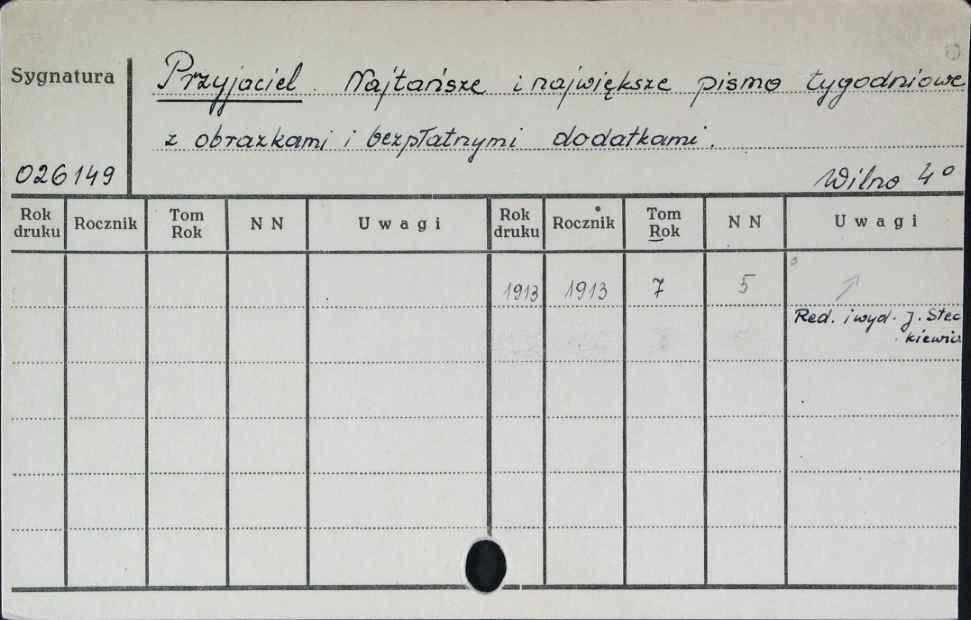 Sygnatura
Przyjaciel. Najtańsze i największe pismo tygodniowe
z obrazkami i bezpłatnymi dodatkami.
026149
Wilno 4°
Rok druku Rocznik Tom Rok NN Uwagi Rok druku Rocznik Tom Rok NN Uwagi
1913 1913 7 5
Red. i wyd. J. Stec
kiewicz